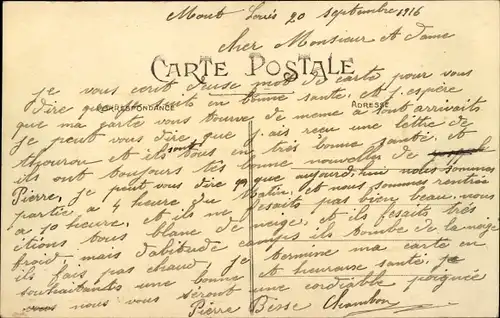 Mont Louis 20 septembre 1916
cher Monsieur et dame
CARTE POSTALE
je vous ecrit deuse mot de carte pour vous
dire que en bonne sante, et j'espère
CORRESPONDANCE
ADRESSE
que ma carte vous trouve de meme a tont arrivait
je peut vous dire, que j'ais reçu une lettre de
et ils sont tous en très bonne santé, et
ils ont toujours tés bonne nouvelles de
Pierre, je peut vous dire que aujourd'hui nous sommes
partie a 4 heure du matin, et nous sommes rentrée
a 10 heure, et il ne fesaits pas bien beau, nous
étions tous blanc de neige, et ils fesaits trés
froid, mais dabitude ils tombe de la neige
ils fais pas chaud, je termine ma carte en
souhaitances une bonne et heurause sante, je
nous vous seront une cordiable poignée
Pierre Bisse Chambon